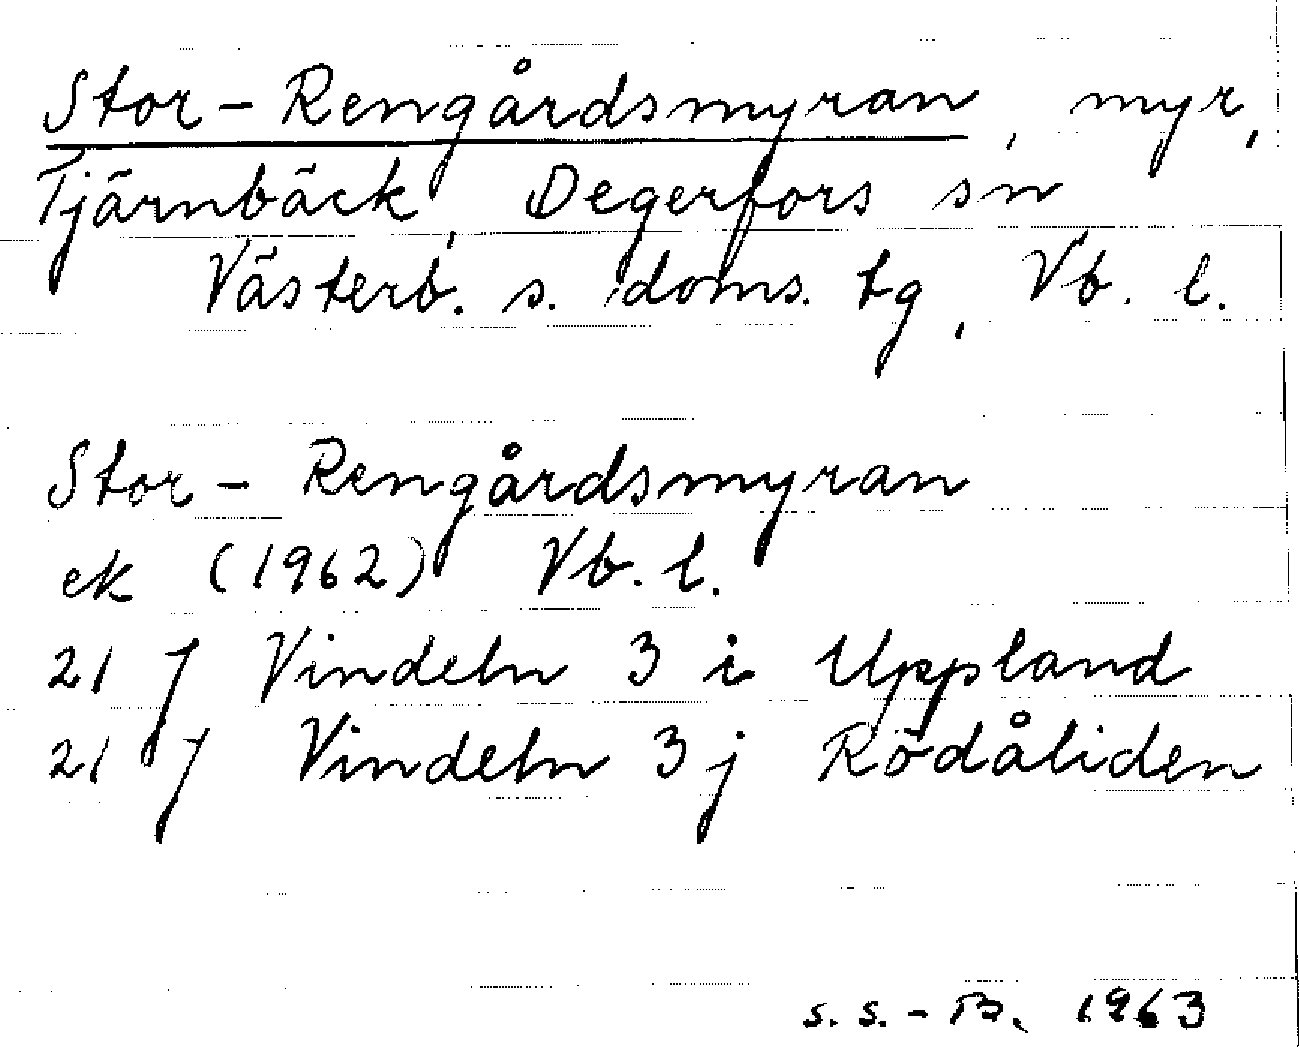 Stor-Rengårdsmyran, myr,
Tjärnbäck, Degerfors sn
Västerb. s. doms. tg, Vb. l.
Stor-Rengårdsmyran
ek (1962) Vb. l.
21 J Vindeln 3 i Uppland
21 J Vindeln 3 j Rödåliden
s. s.-B. 1963